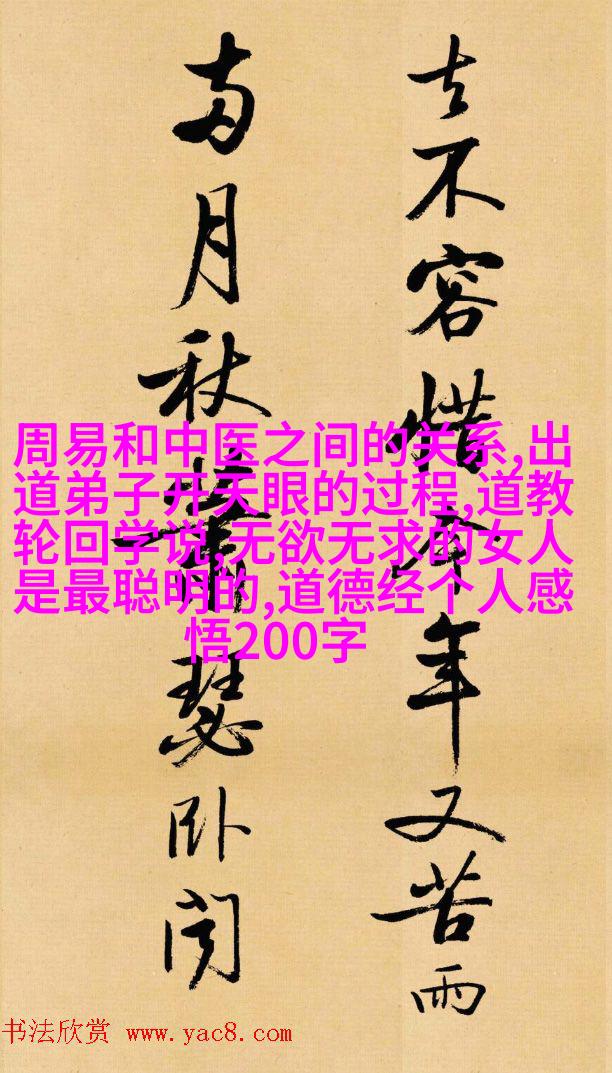 去不容惜今年又苦雨
兩月秋蕭瑟卧聞
周易和中医之间的关系,出
道弟子开天眼的过程,道教
轮回学说,无欲无求的女人
是最聪明的,道德经个人感
悟200字
书法欣赏 www.yac8.com